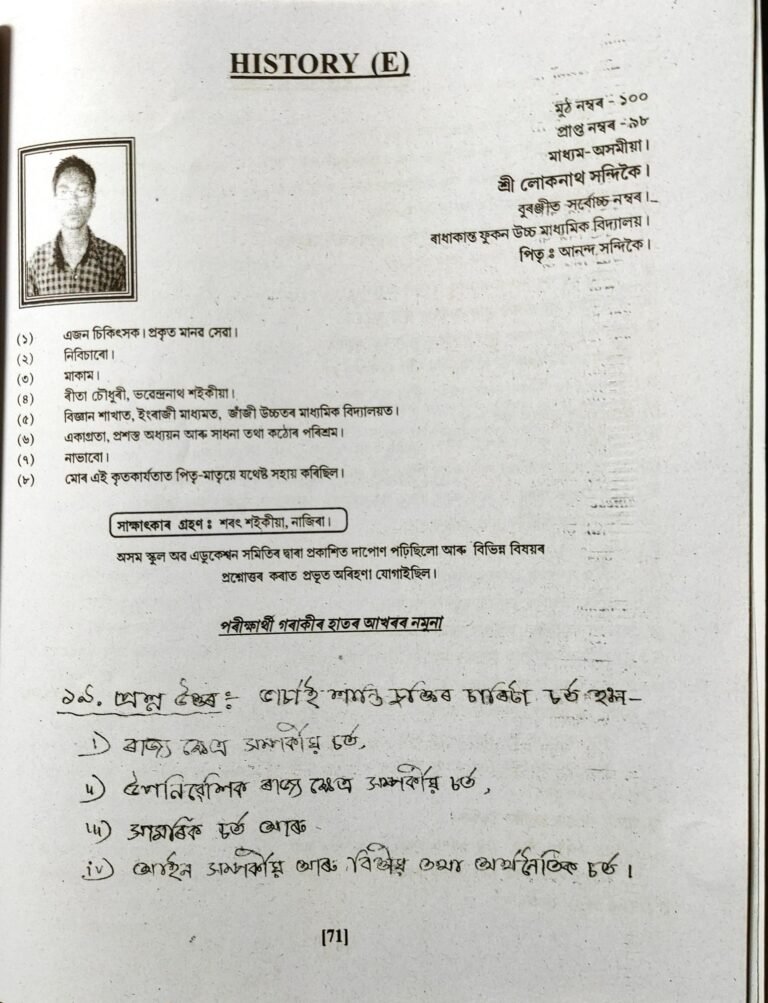 HISTORY (E)
মুঠ নম্বৰ - ১০০
প্ৰাপ্ত নম্বৰ -৯৮
মাধ্যম- অসমীয়া।
শ্ৰী লোকনাথ সন্দিকৈ।
বুৰঞ্জীত সৰ্বোচ্চ নম্বৰ।
ৰাধাকান্ত ফুকন উচ্চ মাধ্যমিক বিদ্যালয়।
পিতৃ ঃ আনন্দ সন্দিকৈ।
(১) এজন চিকিৎসক। প্ৰকৃত মানৱ সেৱা।
(২) নিবিচাৰো।
(৩) মাকাম।
(৪) ৰীতা চৌধুৰী, ভবেন্দ্ৰনাথ শইকীয়া।
(৫) বিজ্ঞান শাখাত, ইংৰাজী মাধ্যমত, জাঁজী উচ্চতৰ মাধ্যমিক বিদ্যালয়ত।
(৬) একাগ্ৰতা, প্ৰশস্ত অধ্যয়ন আৰু সাধনা তথা কঠোৰ পৰিশ্ৰম।
(৭) নাভাবো।
(৮) মোৰ এই কৃতকাৰ্যতাত পিতৃ-মাতৃয়ে যথেষ্ট সহায় কৰিছিল।
সাক্ষাৎকাৰ গ্ৰহণ ঃ শৰৎ শইকীয়া, নাজিৰা।
অসম স্কুল অৱ এডুকেশ্বন সমিতিৰ দ্বাৰা প্ৰকাশিত দাপোণ পঢ়িছিলো আৰু বিভিন্ন বিষয়ৰ
প্ৰশ্নোত্তৰ কৰাত প্ৰভূত অৰিহণা যোগাইছিল।
পৰীক্ষাৰ্থী গৰাকীৰ হাতৰ আখৰৰ নমুনা
১৯. প্ৰশ্ন উত্তৰ ঃ ভাৰ্চাই শান্তি চুক্তিৰ চাৰিটা চৰ্ত হ'ল –
i) ৰাজ্য ক্ষেত্ৰ সম্পৰ্কীয় চৰ্ত,
ii) ঔপনিৱেশিক ৰাজ্য ক্ষেত্ৰ সম্পৰ্কীয় চৰ্ত,
iii) সামৰিক চৰ্ত আৰু
iv) আইন সম্পৰ্কীয় আৰু বিত্তীয় তথা অৰ্থনৈতিক চৰ্ত।
[71]